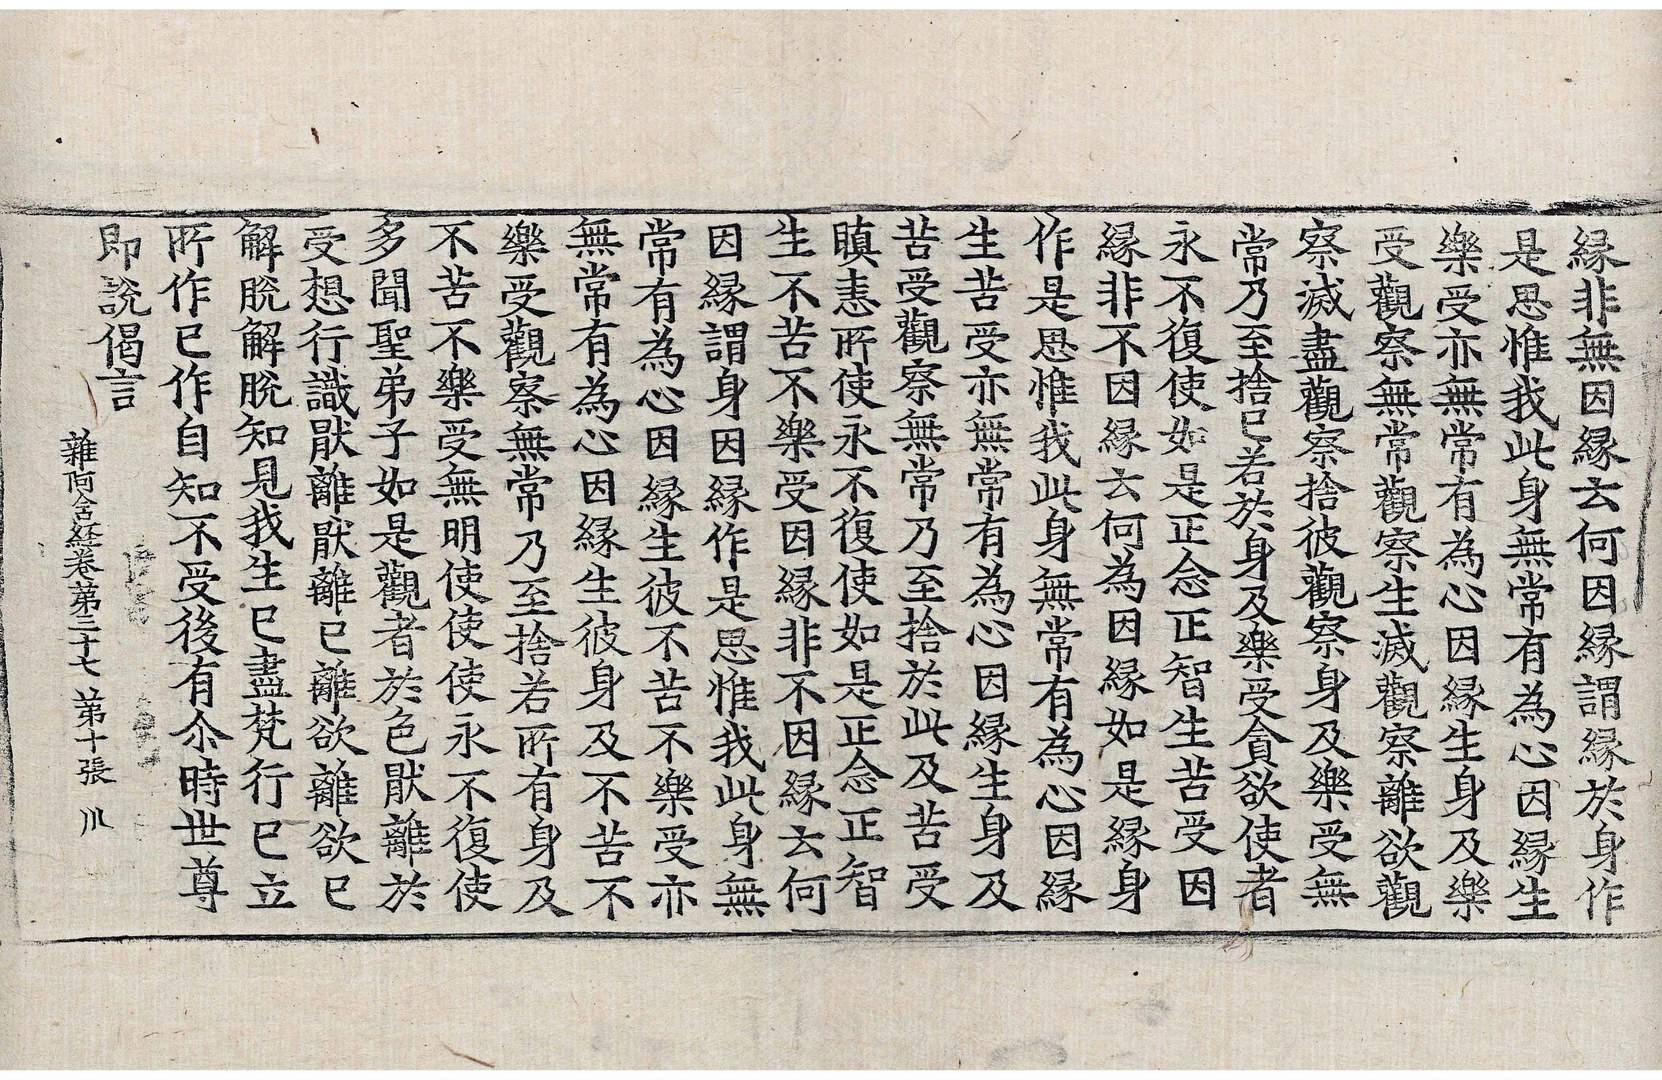 縁非無因縁云何因縁謂縁於身作
是思惟我此身無常有為心因縁生
樂受亦無常有為心因縁生身及樂
受觀察無常觀察生滅觀察離欲觀
察滅盡觀察捨彼觀察身及樂受無
常乃至捨已若於身及樂受貪欲使者
永不復使如是正念正智生苦受因
縁非不因縁云何為因縁如是縁身
作是思惟我此身無常有為心因縁
生苦受亦無常有為心因縁生身及
苦受觀察無常乃至捨於此及苦受
瞋恚所使永不復使如是正念正智
生不苦不樂受因縁非不因縁云何
因縁謂身因縁作是思惟我此身無
常有為心因縁生彼不苦不樂受亦
無常有為心因縁生彼身及不苦不
樂受觀察無常乃至捨若所有身及
不苦不樂受無明使使使永不復使
多聞聖弟子如是觀者於色猒離於
受想行識猒離猒離已離欲離欲已
解脫解脫知見我生已盡梵行已立
所作已作自知不受後有尒時世尊
即說偈言
雜阿含経卷第三十七 第十張 川